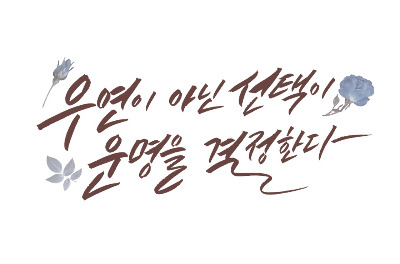 우연이 아닌 선택이
운명을 결정한다